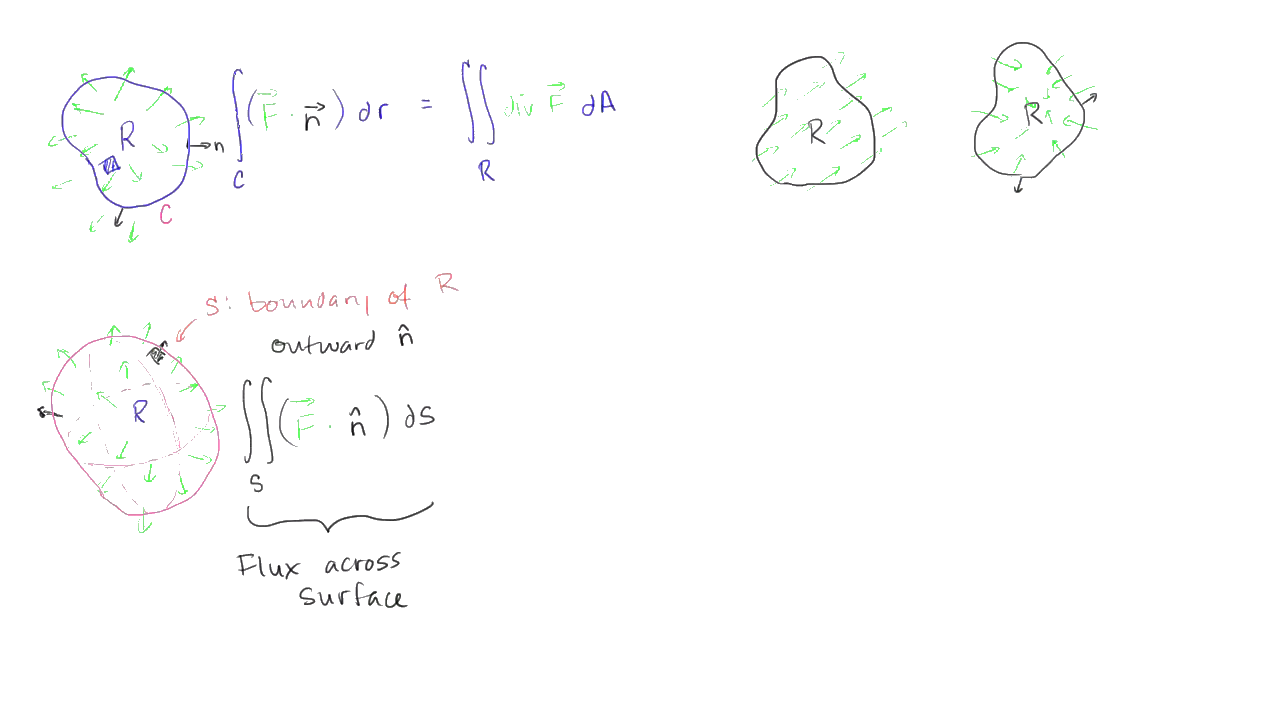 R
n
C
∫ ( F⃗ · n⃗ ) dr = ∬ div F⃗ dA
C
R
R
R
S: boundary of R
outward n̂
R
∬ ( F⃗ · n̂ ) dS
S
Flux across
surface